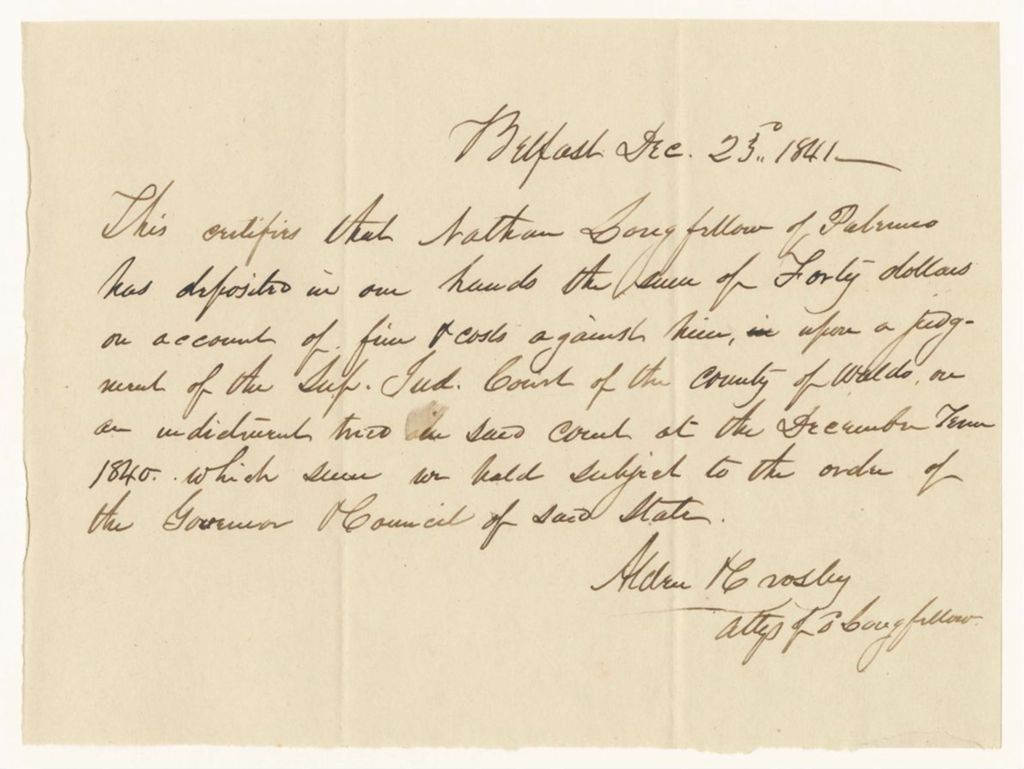 Belfast Dec. 23d. 1841
This certifies that Nathan Longfellow of Palermo
has deposited in our hands the sum of Forty dollars
on account of fine & costs against him, in upon a judg-
ment of the Sup. Jud. Court of the county of Waldo, on
an indictment tried in said court at the December Term
1840. which sum we hold subject to the order of
the Governor & Council of said State.
Alden & Crosby
Attys of sd Longfellow.